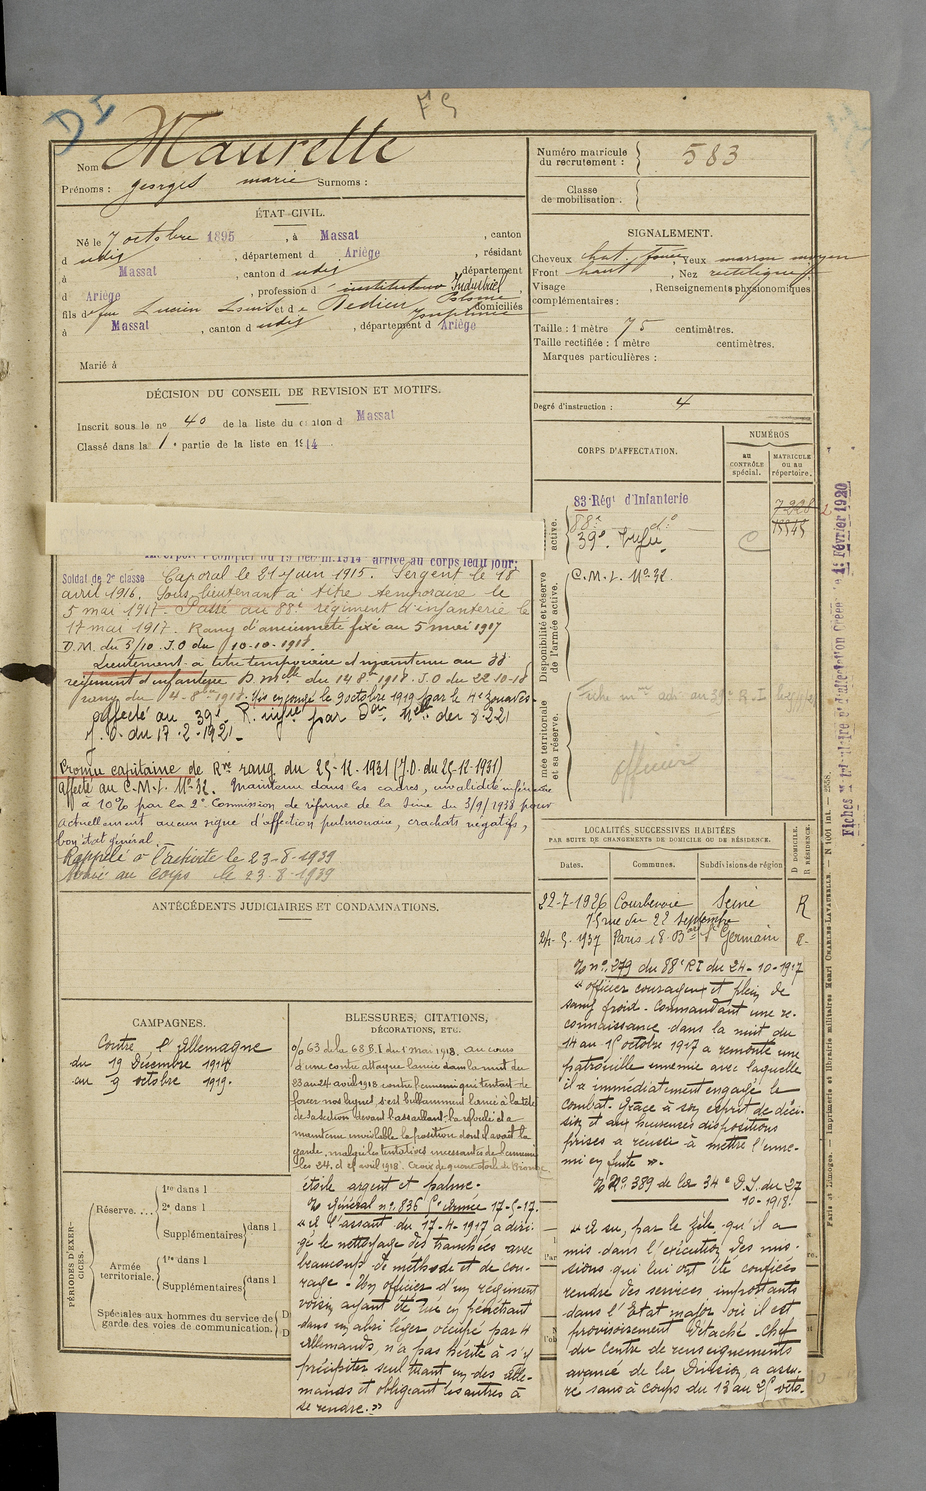 DI
FG
Nom Maurette
Prénoms : georges marie Surnoms :
Numéro matricule du recrutement : 583
Classe de mobilisation :
ÉTAT CIVIL.
Né le 7 octobre 1895, à Massat, canton
d udit, département d Ariège, résidant
à Massat, canton d udit, département
d Ariège, profession d instituteur Industriel,
fils d feu Lucien Louis et de Dedieu domiciliés
à Massat, canton d udit, département d Ariège
Marié à
SIGNALEMENT.
Cheveux chat. foncé, Yeux marron moyen
Front haut, Nez rectiligne
Visage , Renseignements physionomiques
complémentaires :
Taille : 1 mètre 75 centimètres.
Taille rectifiée : 1 mètre centimètres.
Marques particulières :
Degré d'instruction : 4
DÉCISION DU CONSEIL DE REVISION ET MOTIFS.
Inscrit sous le no 40 de la liste du canton d Massat
Classé dans la 1e partie de la liste en 1914
CORPS D'AFFECTATION.
NUMÉROS
au CONTRÔLE spécial.
MATRICULE ou au répertoire.
83 Régt d'Infanterie
88e do
39e Infie
C.M.I. No 32.
active.
Disponibilité et réserve de l'armée active.
mée territoriale et sa réserve.
7228
15545
officier
1er Février 1920
arrivé au corps ledit jour;
Soldat de 2e classe Caporal le 21 Juin 1915. Sergent le 18
avril 1916. Sous lieutenant à titre temporaire le
5 mai 1917. Passé au 88e régiment d'infanterie le
17 mai 1917. Rang d'ancienneté fixé au 5 mai 1917
D.M. du 3/10. J.O du 10-10-1918.
Lieutenant à titre temporaire et maintenu au 88
régiment d'infanterie D. Melle du 14 8bre 1918. J.O du 22-10-18
rang du 4-8bre 1918. Mis en congé le 9 octobre 1919 par le 4e Zouaves
affecté au 39e R. infie par Don Melle du 8-2-21
J.O. du 17-2-1921.
Promu capitaine de Rve rang du 25-12-1931 (J.O. du 25-12-1931)
affecté au C.M.I. No 32. Maintenu dans les cadres, invalidité inférieure
à 10% par la 2e Commission de réforme de la Seine du 3/9/1938 pour
actuellement aucun signe d'affection pulmonaire, crachats négatifs,
bon état général.
Rappelé à l'activité le 23-8-1939
Arrivé au Corps le 23-8-1939
ANTÉCÉDENTS JUDICIAIRES ET CONDAMNATIONS.
LOCALITÉS SUCCESSIVES HABITÉES
PAR SUITE DE CHANGEMENTS DE DOMICILE OU DE RÉSIDENCE.
Dates. Communes. Subdivisions de région D DOMICILE. R RÉSIDENCE.
22-7-1926 Courbevoie Seine R
75 rue du 22 Septembre
24-5-1937 Paris 18 Bard St Germain R.
CAMPAGNES.
Contre l'Allemagne
du 19 Décembre 1914
au 9 octobre 1919.
BLESSURES, CITATIONS,
DÉCORATIONS, ETC.
o/o 63 de la 68 B.I du 1 mai 1918. au cours
d'une contre attaque lancée dans la nuit du
23 au 24 avril 1918 contre l'ennemi qui tentait de
forcer nos lignes, s'est brillamment lancé à la tête
de sa section devant l'assaillant, l'a refoulé et a
maintenu inviolable la position dont il avait la
garde, malgré les tentatives incessantes de l'ennemi
les 24, et 25 avril 1918. Croix de guerre étoile de bronze
étoile argent et palme.
O. général no 836 5e Armée 17-5-17.
"à l'assaut du 17-4-1917 a diri-
gé le nettoyage des tranchées avec
beaucoup de méthode et de cou-
rage. Un officier d'un régiment
voisin ayant été tué en pénétrant
dans un abri léger occupé par 4
allemands, n'a pas hésité à s'y
précipiter seul tuant un des alle-
mands et obligeant les autres à
se rendre."
O no 279 du 88e RI du 24-10-1917
"officier courageux et plein de
sang froid. Commandant une re-
connaissance dans la nuit du
14 au 15 octobre 1917 a remonté une
patrouille ennemie avec laquelle
il a immédiatement engagé le
combat. Grâce à son esprit de déci-
sion et aux heureuses dispositions
prises a réussi à mettre l'enne-
mi en fuite ".
O No 389 de la 34e D.I. du 27
10-1918.
"a su, par le zèle qu'il a
mis dans l'exécution des mis-
sions qui lui ont été confiées
rendre des services importants
dans l'état major où il est
provisoirement détaché. Chef
du Centre de renseignements
avancé de la Division, a assu-
ré sans à coups du 13 au 25 octo-
PÉRIODES D'EXERCICES.
Réserve.... 1re dans l
2e dans l
Supplémentaires dans l
Armée territoriale. 1re dans l
Supplémentaires dans l
Spéciales aux hommes du service de garde des voies de communication.
Paris et Limoges. — Imprimerie et librairie militaires Henri CHARLES-LAVAUZELLE.